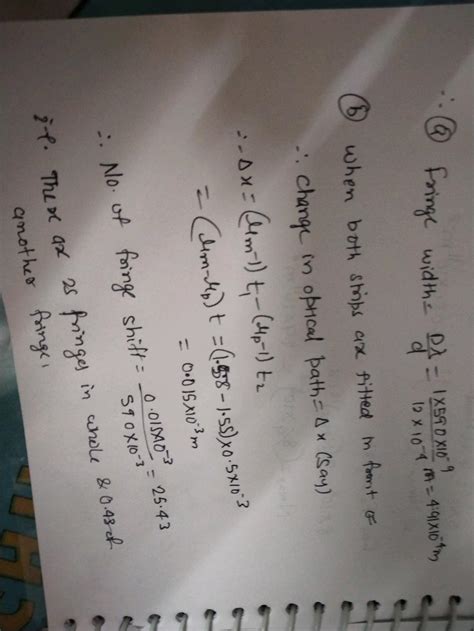 ∴ (a) fringe width = Dλ/d = 1×590×10⁻⁹/12×10⁻⁴ m = 4.91×10⁻⁴ m
(b) when both strips are fitted in front of
∴ change in optical path = Δx (say)
∴ Δx = (μm-1) t₁ - (μp-1) t₂
= (μm-μp) t = (1.58 - 1.55) × 0.5×10⁻³
= 0.015×10⁻³ m
∴ No. of fringe shift = 0.015×10⁻³/590×10⁻³ = 25.43
i.e. There are 25 fringes in whole & 0.43 of
another fringe,